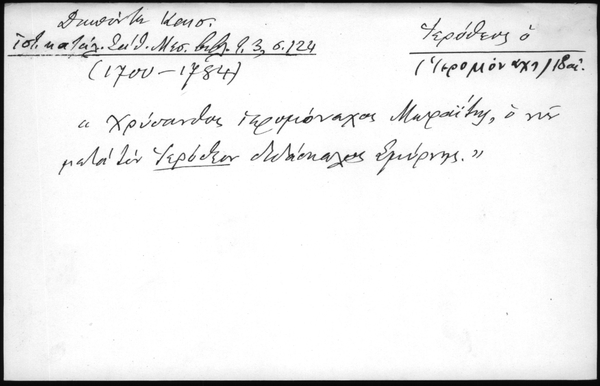 Δαπόντε Καισ.
Ἱστ. κατάλ. Σάθ. Μεσ. βιβλ. τ. 3, σ. 124
(1700-1784)
Ἱερόθεος ὁ
(Ἱερομόναχος) 18 αἰ.
« Χρύσανθος ἱερομόναχος Μωραΐτης, ὁ νῦν
μετὰ τὸν Ἱερόθεον διδάσκαλος Σμύρνης. »